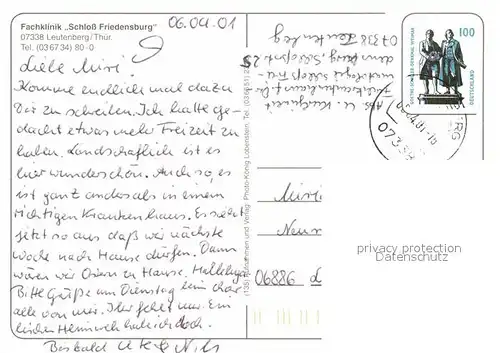 Fachklinik „Schloß Friedensburg"
07338 Leutenberg/Thür.
Tel. (0 36 734) 80-0
06.04.01
Liebe Miri.
Komme endlich mal dazu
Dir zu schreiben. Ich hatte ge-
dacht etwas mehr Freizeit zu
haben. Landschaftlich ist es
hier wunderschön. Auch so, es
ist ganz anders als in einem
richtigen Krankenhaus. Es sieht
jetzt so aus daß wir nächste
Woche nach Hause dürfen. Dann
wären wir Ostern zu Hause. Halleluja
Bitte Grüße am Dienstag beim Chor
alle von mir. Ihr fehlt mir. Ein
bischen Heimweh hab ich doch.
Bis bald Ute & Nils
07338 Leutenberg
Photo-König Lobenstein, Tel. (03 66 51) 2
Aufnahmen und Verlag:
GOETHE-SCHILLER-DENKMAL WEIMAR
100
DEUTSCHLAND
07338
Miri
06886
privacy protection
Datenschutz